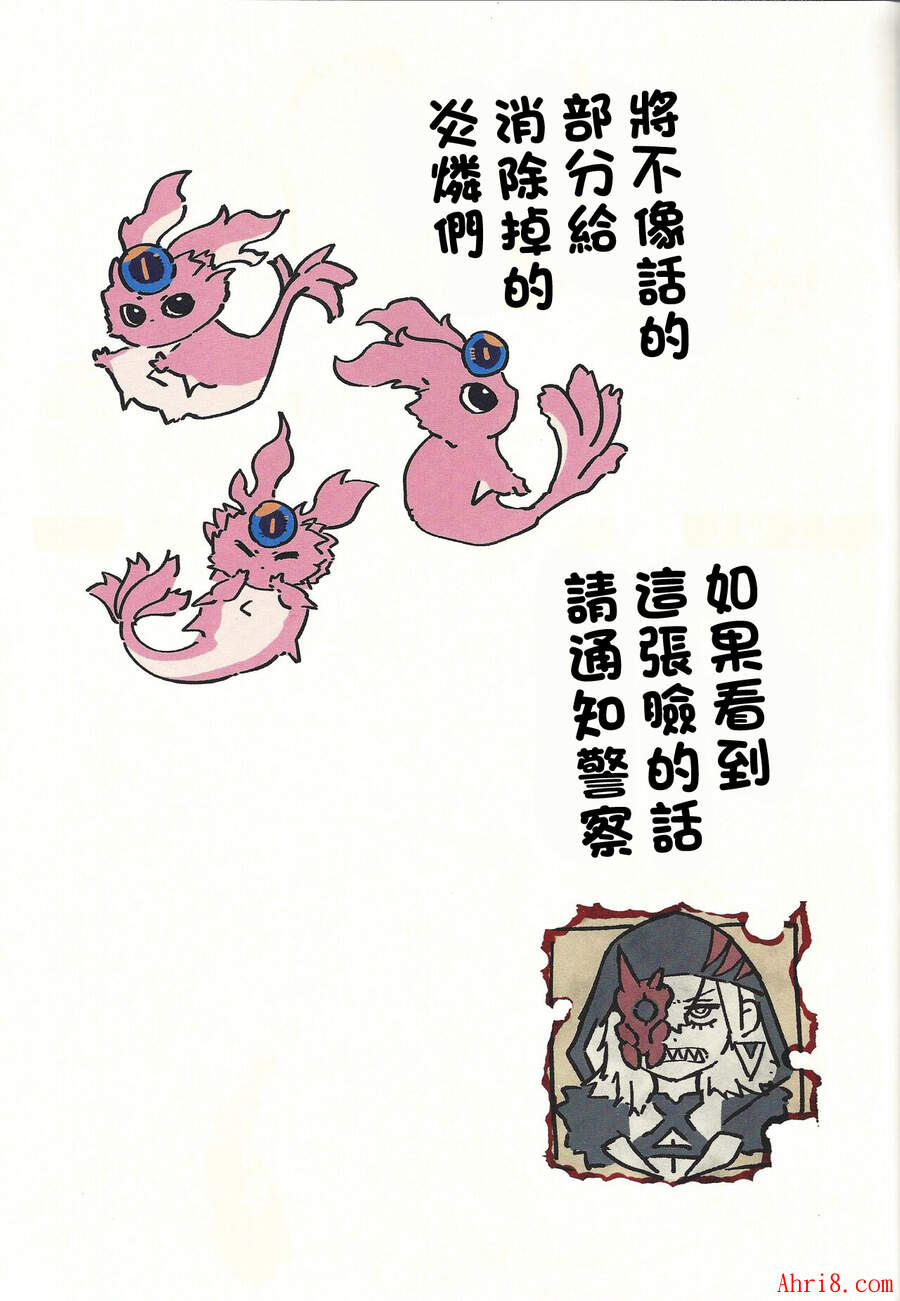 將不像話的
部分給
消除掉的
炎燐們
如果看到
這張臉的話
請通知警察
Ahri8.com